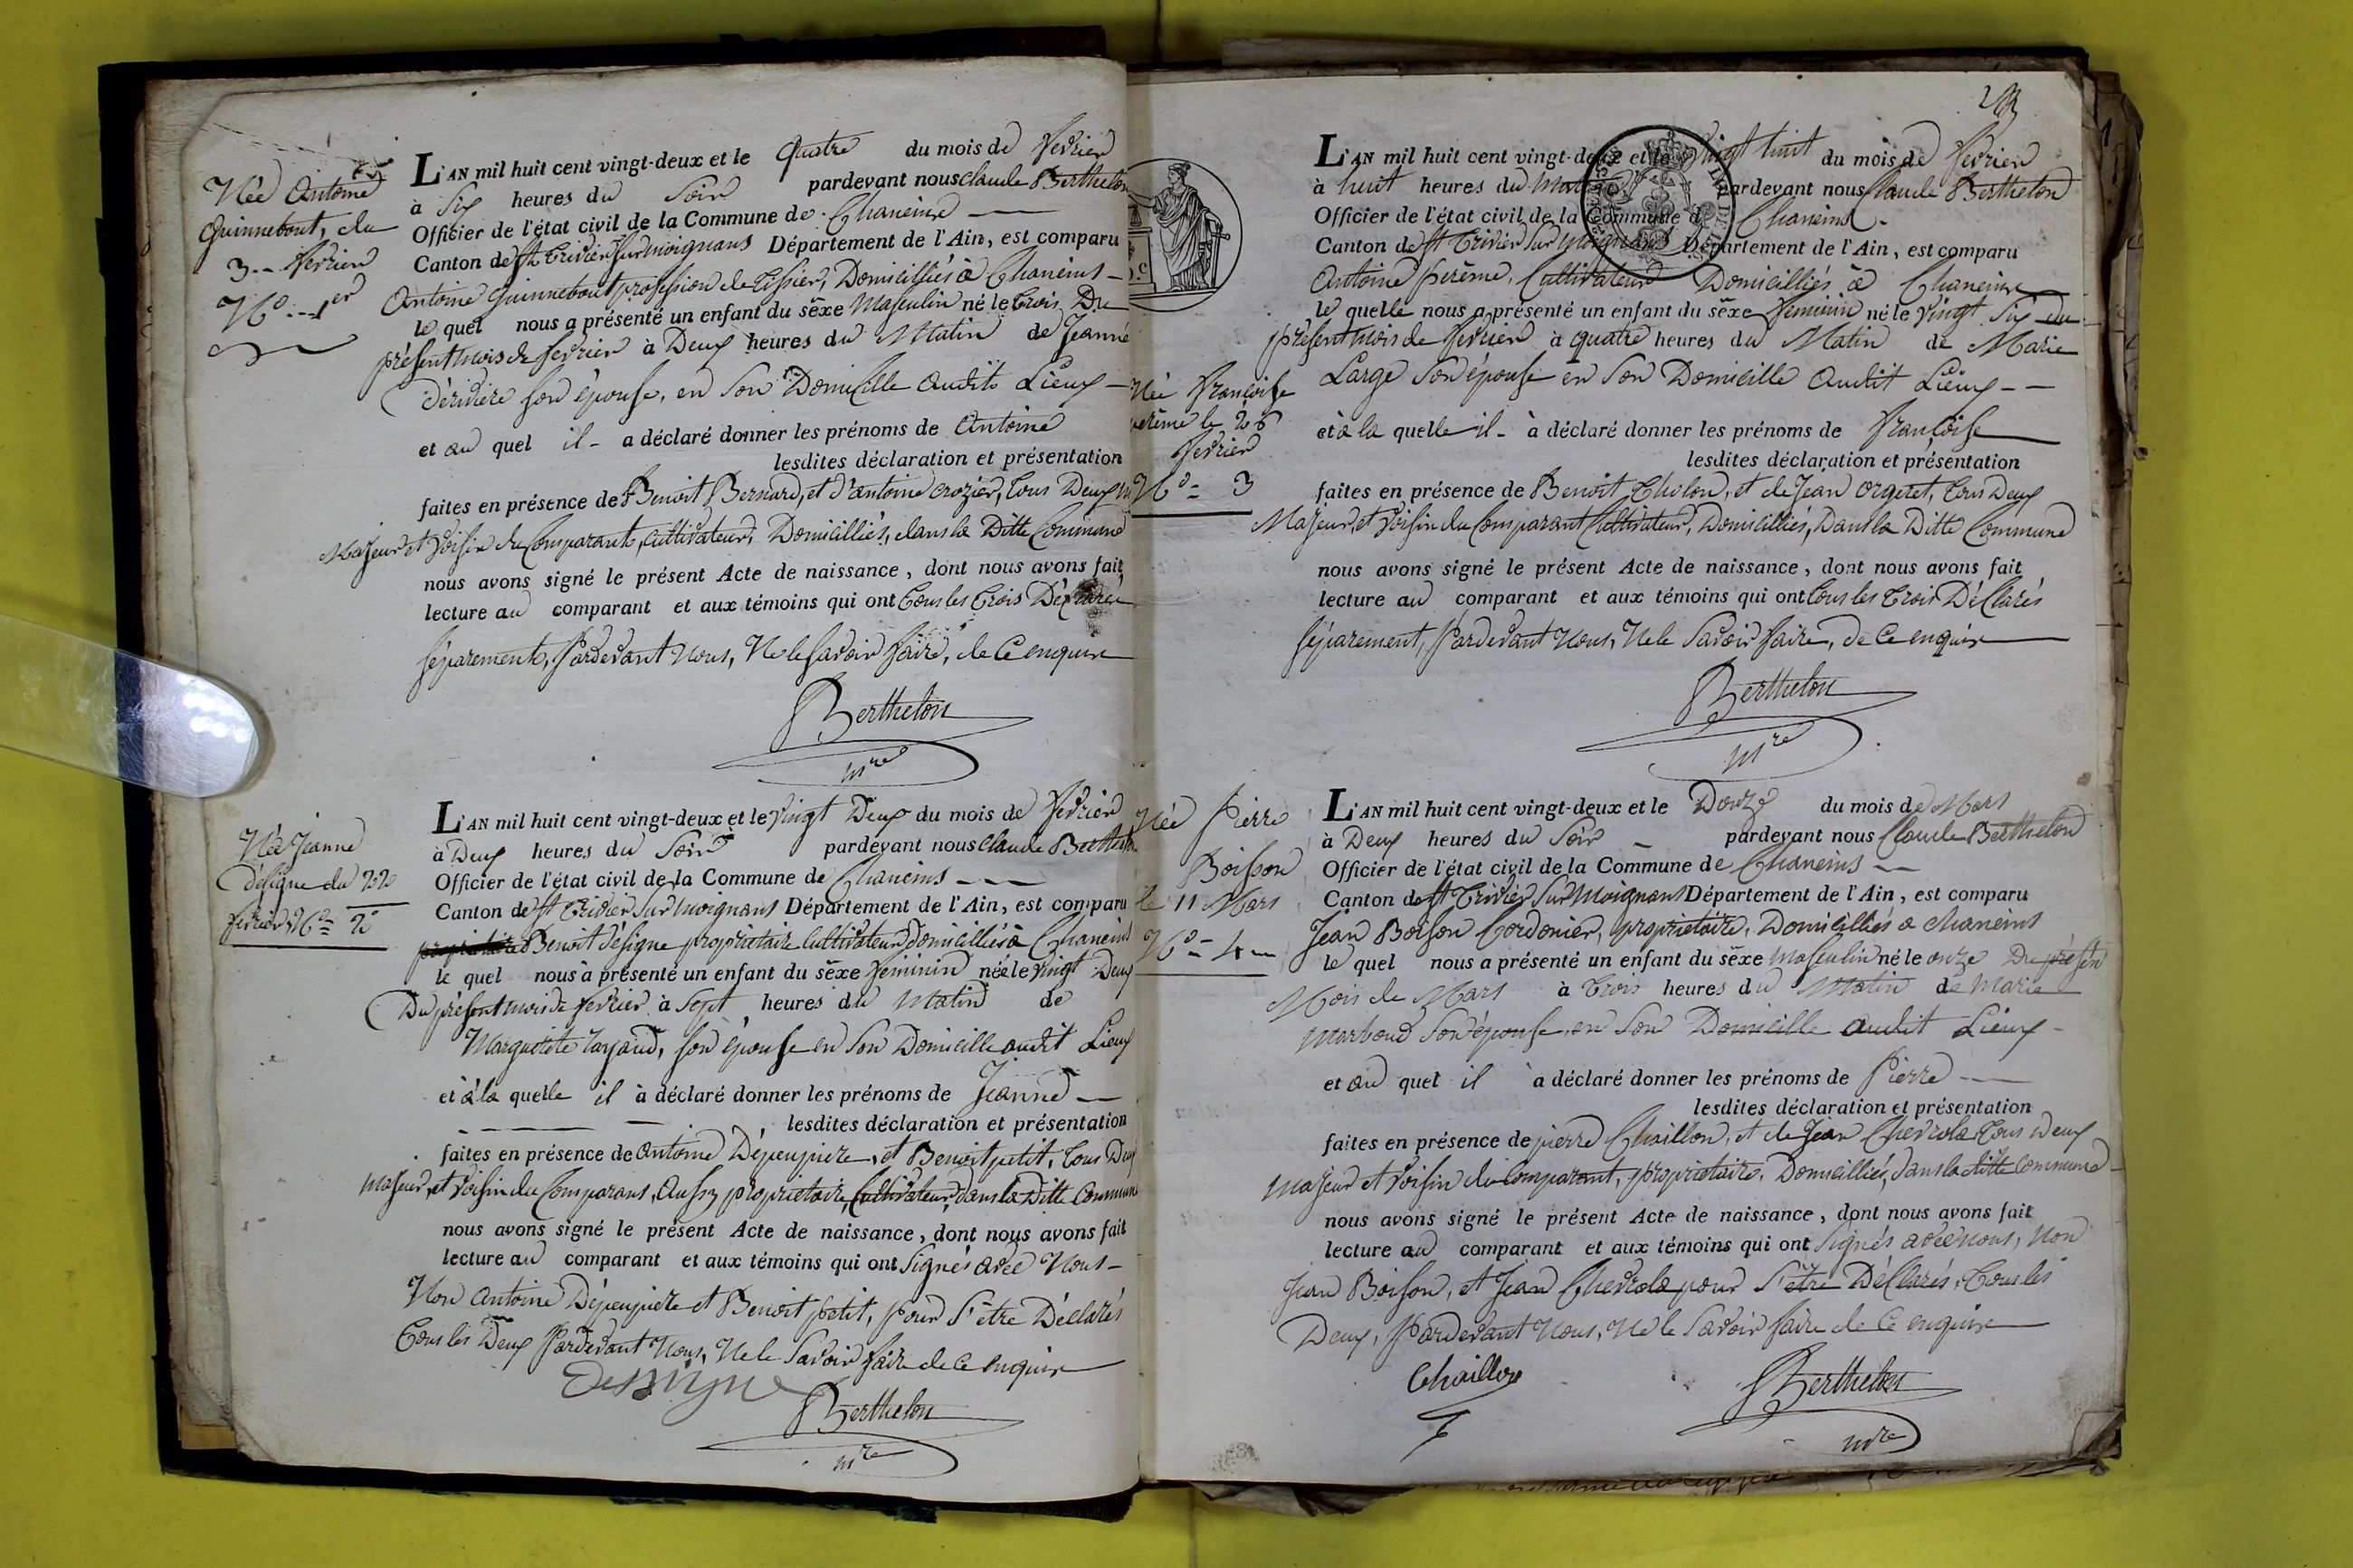 Née Antoine
Guinnebout, du
3-- fevrier
N.º---1er
L'AN mil huit cent vingt-deux et le quatre du mois de fevrier
à Six heures du Soir pardevant nous claude Berthelon
Officier de l'état civil de la Commune de Chaneins
Canton de St. Trivier Sur moignans Département de l'Ain, est comparu
Antoine Guinnebout profession de tissier, Domicilliés à Chaneins
le quel nous a présenté un enfant du sexe Masculin né le trois Du
présent mois de fevrier à Deux heures du Matin de Jeanne
Dériviere son épouse, en Son Domicille audit Lieux
et au quel il a déclaré donner les prénoms de Antoine
lesdites déclaration et présentation
faites en présence de Benoit Bernard, et d'antoine crozier, tous Deux
Majeur et voisin du Comparant, cultivateur, Domicilliés, dans la Ditte Commune
nous avons signé le présent Acte de naissance, dont nous avons fait
lecture au comparant et aux témoins qui ont tous les trois Déclarés
séparement, pardevant nous, Ne le savoir faire, de ce enquis
Berthelon
mre
Née Jeanne
Désigne du 22
fevrier N.º 2
L'AN mil huit cent vingt-deux et le vingt Deux du mois de fevrier
à Deux heures du Soir pardevant nous claude Berthelon
Officier de l'état civil de la Commune de Chaneins
Canton de St Trivier Sur moignans Département de l'Ain, est comparu
Benoit désigne proprietaire Cultivateur domicilliés à Chaneins
le quel nous à présenté un enfant du sexe feminin née le vingt Deux
Du présent mois de fevrier à Sept heures du Matin de
Son épouse en Son Domicille audit Lieux
et à la quelle il à déclaré donner les prénoms de Jeanne
lesdites déclaration et présentation
faites en présence de antoine Dépeupiere, et Benoit petit, tous Deux
Majeur, et voisin du Comparant, Aussy proprietaire, Cultivateur, dans la Ditte Commune
nous avons signé le présent Acte de naissance, dont nous avons fait
lecture au comparant et aux témoins qui ont Signés avec Nous
Non antoine Dépeupiere et Benoit petit, pour S'être Déclarés
tous les Deux Pardevant Nous, Ne le Savoir faire de ce enquis
Berthelon
mre
Née françoise
perême le 26
fevrier
N.º 3
L'AN mil huit cent vingt-deux et le vingt huit du mois de fevrier
à huit heures du Matin pardevant nous Claude Berthelon
Officier de l'état civil de la Commune de Chaneins
Canton de St Trivier Sur moignans Département de l'Ain, est comparu
Antoine perême, Cultivateur Domicilliés à Chaneins
le quelle nous a présenté un enfant du sexe feminin né le vingt Six du
présent mois de fevrier à quatre heures du Matin de Marie
Large Son épouse en Son Domicille Audit Lieux
et à la quelle il à déclaré donner les prénoms de françoise
lesdites déclaration et présentation
faites en présence de Benoit Cholon, et de Jean orgeret, tous Deux
Majeur, et voisin du Comparant Cultivateur, Domicilliés, Dans la Ditte Commune
nous avons signé le présent Acte de naissance, dont nous avons fait
lecture au comparant et aux témoins qui ont tous les trois Déclarés
séparement, pardevant Nous, Ne le Savoir faire, de ce enquis
Berthelon
mre
Née Pierre
Boisson
le 11 Mars
N.º 4
L'AN mil huit cent vingt-deux et le Douze du mois de Mars
à Deux heures du Soir pardevant nous Claude Berthelon
Officier de l'état civil de la Commune de Chaneins
Canton de St Trivier Sur moignans Département de l'Ain, est comparu
Jean Boisson Cordonier, proprietaire, Domicilliés a chaneins
le quel nous a présenté un enfant du sexe masculin né le onze Du présent
Mois de Mars à trois heures du Matin de Marie
Marboud Son épouse en Son Domicille audit Lieux
et au quel il a déclaré donner les prénoms de Pierre
lesdites déclaration et présentation
faites en présence de pierre Chaillon, et de Jean Chevrola, tous Deux
Majeur et voisin du Comparant, proprietaire, Domicilliés, dans la ditte commune
nous avons signé le présent Acte de naissance, dont nous avons fait
lecture au comparant et aux témoins qui ont Signés avec nous, Non
Jean Boisson, et Jean Chevrola pour S'être Déclarés, tous les
Deux, Pardevant Nous, Ne le Savoir faire de ce enquis
Chaillon
Berthelon
mre